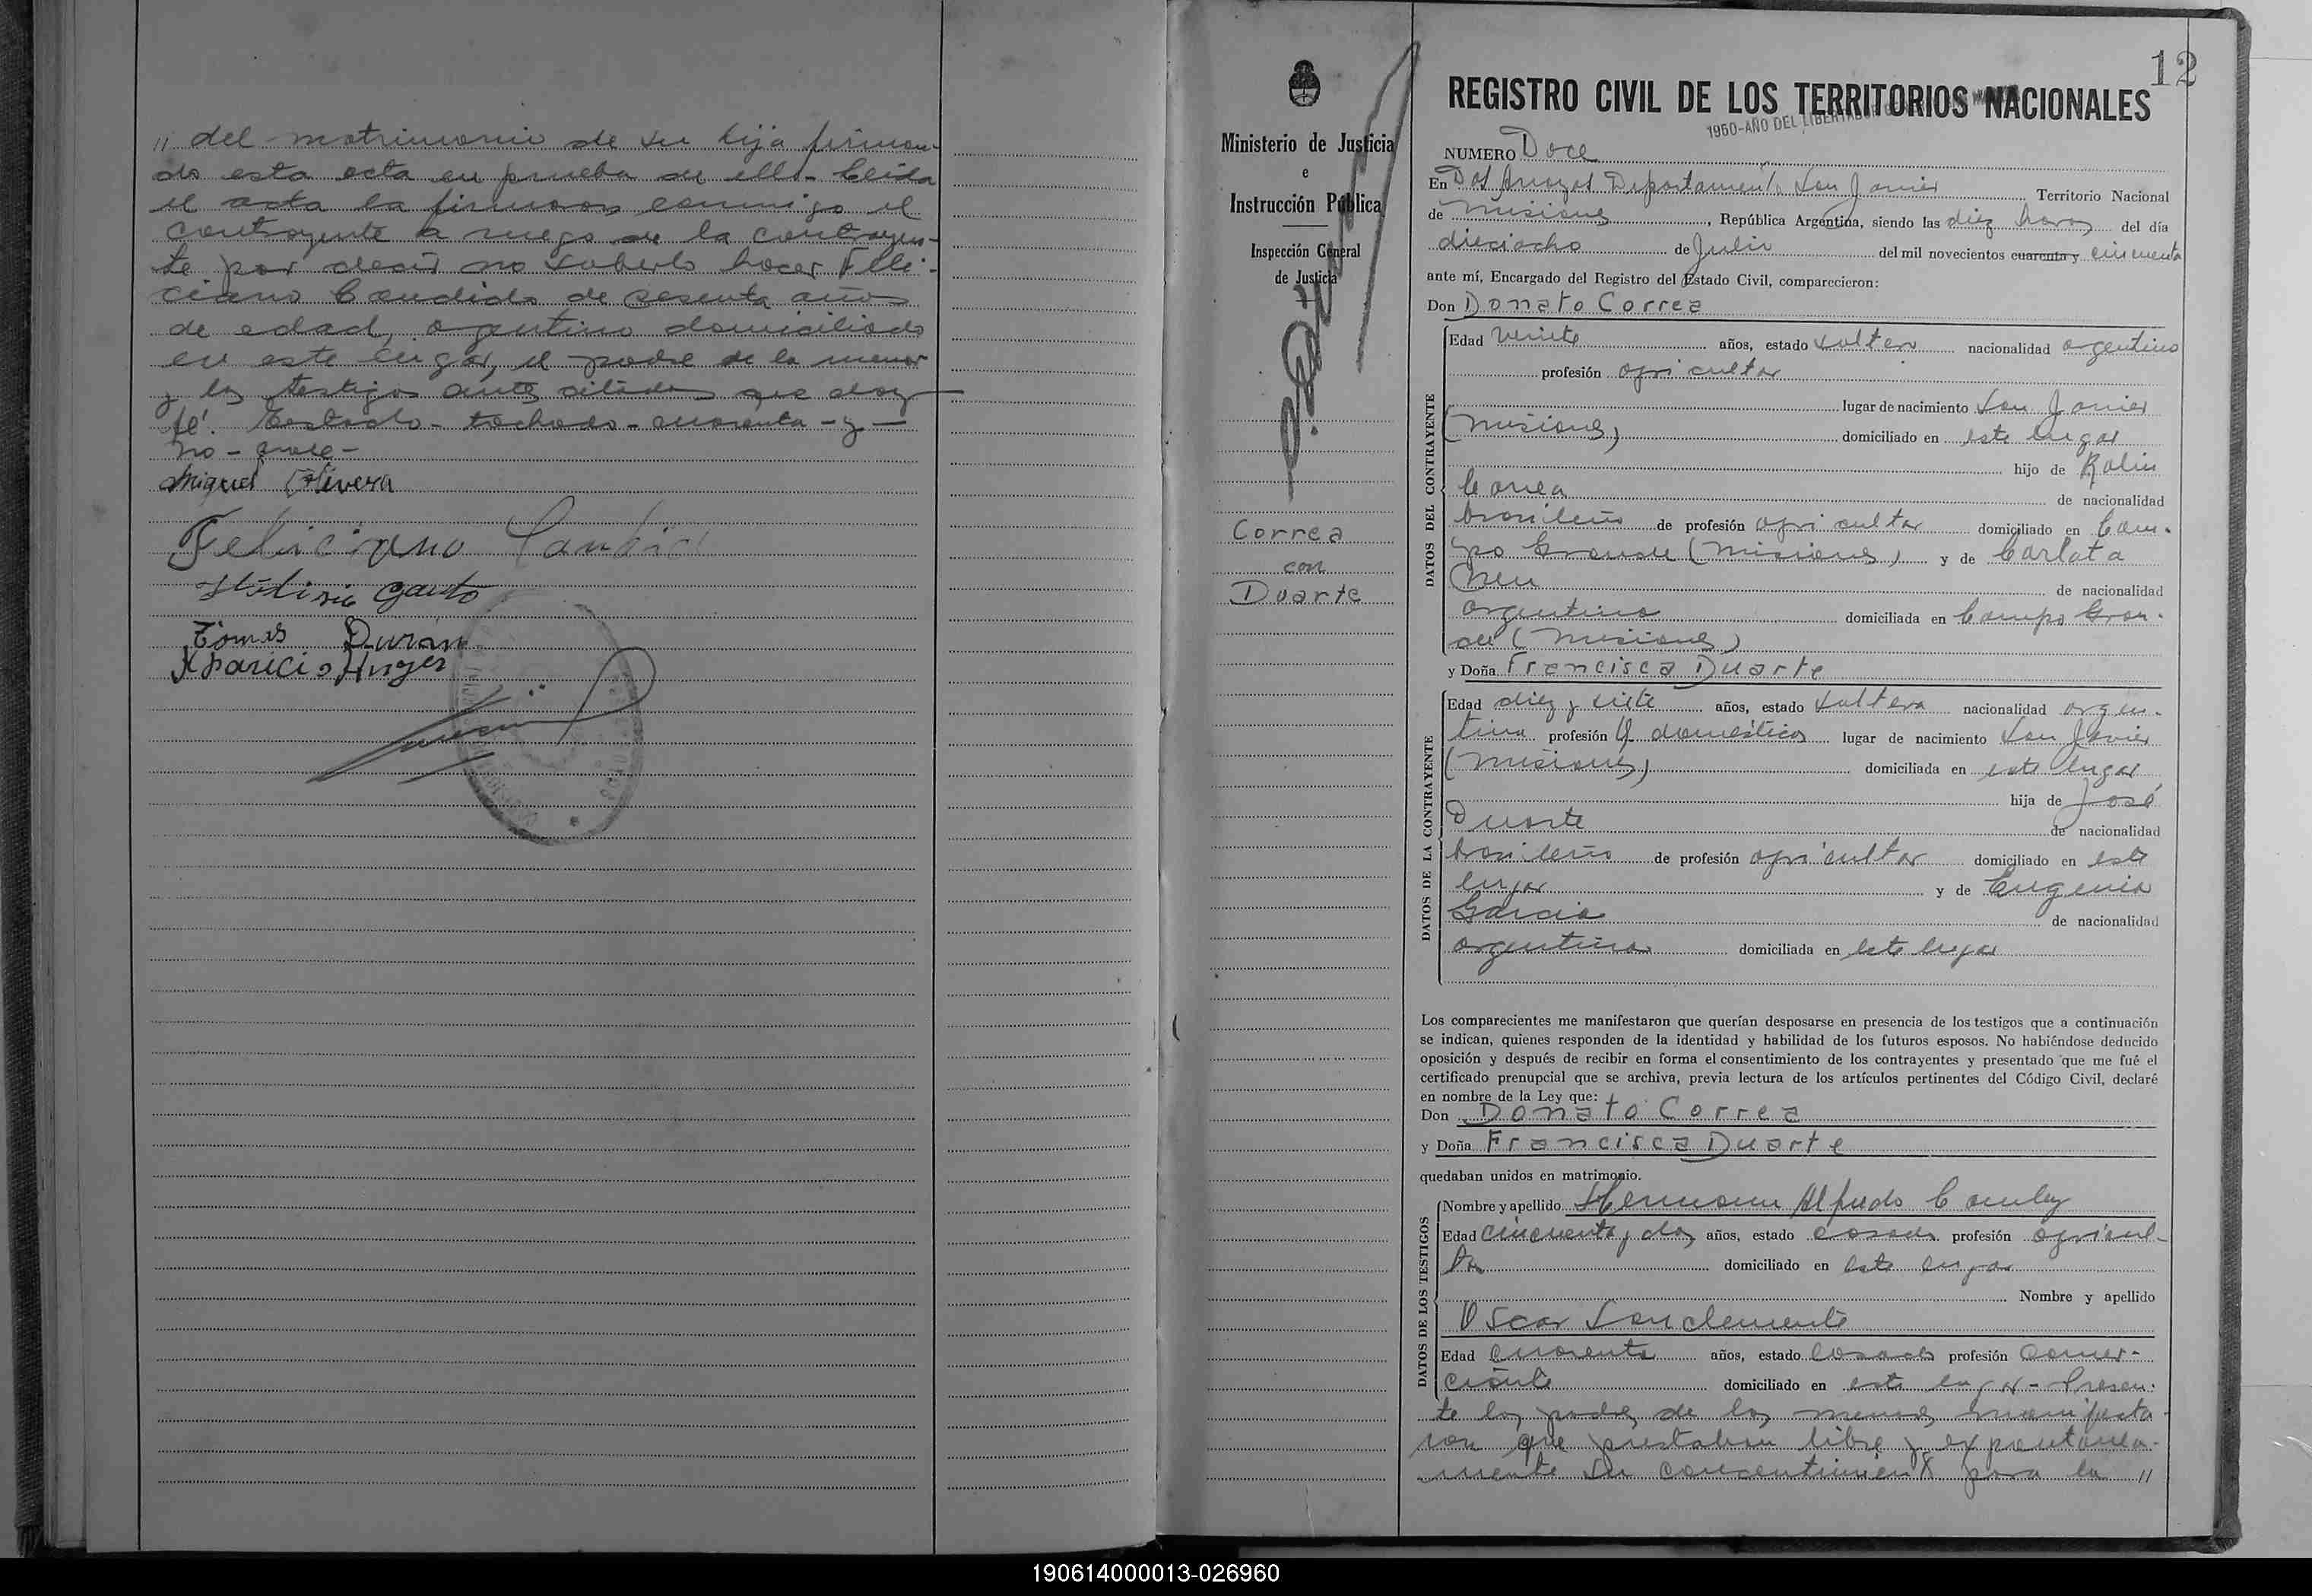 " del matrimonio de su hija firman-
do esta acta en prueba de ello - Leida
el acta la firmaron conmigo el
contrayente a ruego de la contrayen-
te por decir no saberlo hacer Feli-
ciano Candido de sesenta años
de edad, argentino domiciliado
en este lugar, el padre de la menor
y los testigos antes citados que doy
fé. Testado - tachado - cuarenta - y -
no - vale -
Miguel Olivera
Feliciano Candido
Gauto
Tomas Duran
Aparicio
12
REGISTRO CIVIL DE LOS TERRITORIOS NACIONALES
1950-AÑO DEL LIBERTADOR
Ministerio de Justicia
e
Instrucción Pública
Inspección General
de Justicia
Correa
con
Duarte
NUMERO Doce
En Dos Arroyos Departamento San Javier Territorio Nacional
de Misiones, República Argentina, siendo las diez horas del día
dieciocho de Julio del mil novecientos cuarenta y cincuenta
ante mí, Encargado del Registro del Estado Civil, comparecieron:
Don Donato Correa
DATOS DEL CONTRAYENTE
Edad veinte años, estado soltero nacionalidad argentino
profesión agricultor
lugar de nacimiento San Javier
(Misiones) domiciliado en este lugar
hijo de
Correa de nacionalidad
brasileño de profesión agricultor domiciliado en Cam-
po Grande (Misiones) y de Carlota
de nacionalidad
argentina domiciliada en Campo Gran-
de (Misiones)
y Doña Francisca Duarte
DATOS DE LA CONTRAYENTE
Edad diez y siete años, estado soltera nacionalidad argen-
tina profesión Q domésticos lugar de nacimiento San Javier
(Misiones) domiciliada en este lugar
hija de José
Duarte de nacionalidad
brasileño de profesión agricultor domiciliado en este
lugar y de Eugenia
Garcia de nacionalidad
argentina domiciliada en este lugar
Los comparecientes me manifestaron que querían desposarse en presencia de los testigos que a continuación
se indican, quienes responden de la identidad y habilidad de los futuros esposos. No habiéndose deducido
oposición y después de recibir en forma el consentimiento de los contrayentes y presentado que me fué el
certificado prenupcial que se archiva, previa lectura de los artículos pertinentes del Código Civil, declaré
en nombre de la Ley que:
Don Donato Correa
y Doña Francisca Duarte
quedaban unidos en matrimonio.
DATOS DE LOS TESTIGOS
Nombre y apellido Hermann Alfredo
Edad cincuenta y dos años, estado casado profesión agricul-
tor domiciliado en este lugar
Nombre y apellido
Oscar Sanclemente
Edad cuarenta años, estado casado profesión comer-
ciante domiciliado en este lugar - Presen-
te los padres de los menores manifesta
ron que prestaban libre y expontanea-
mente su concentimiento para la "
190614000013-026960